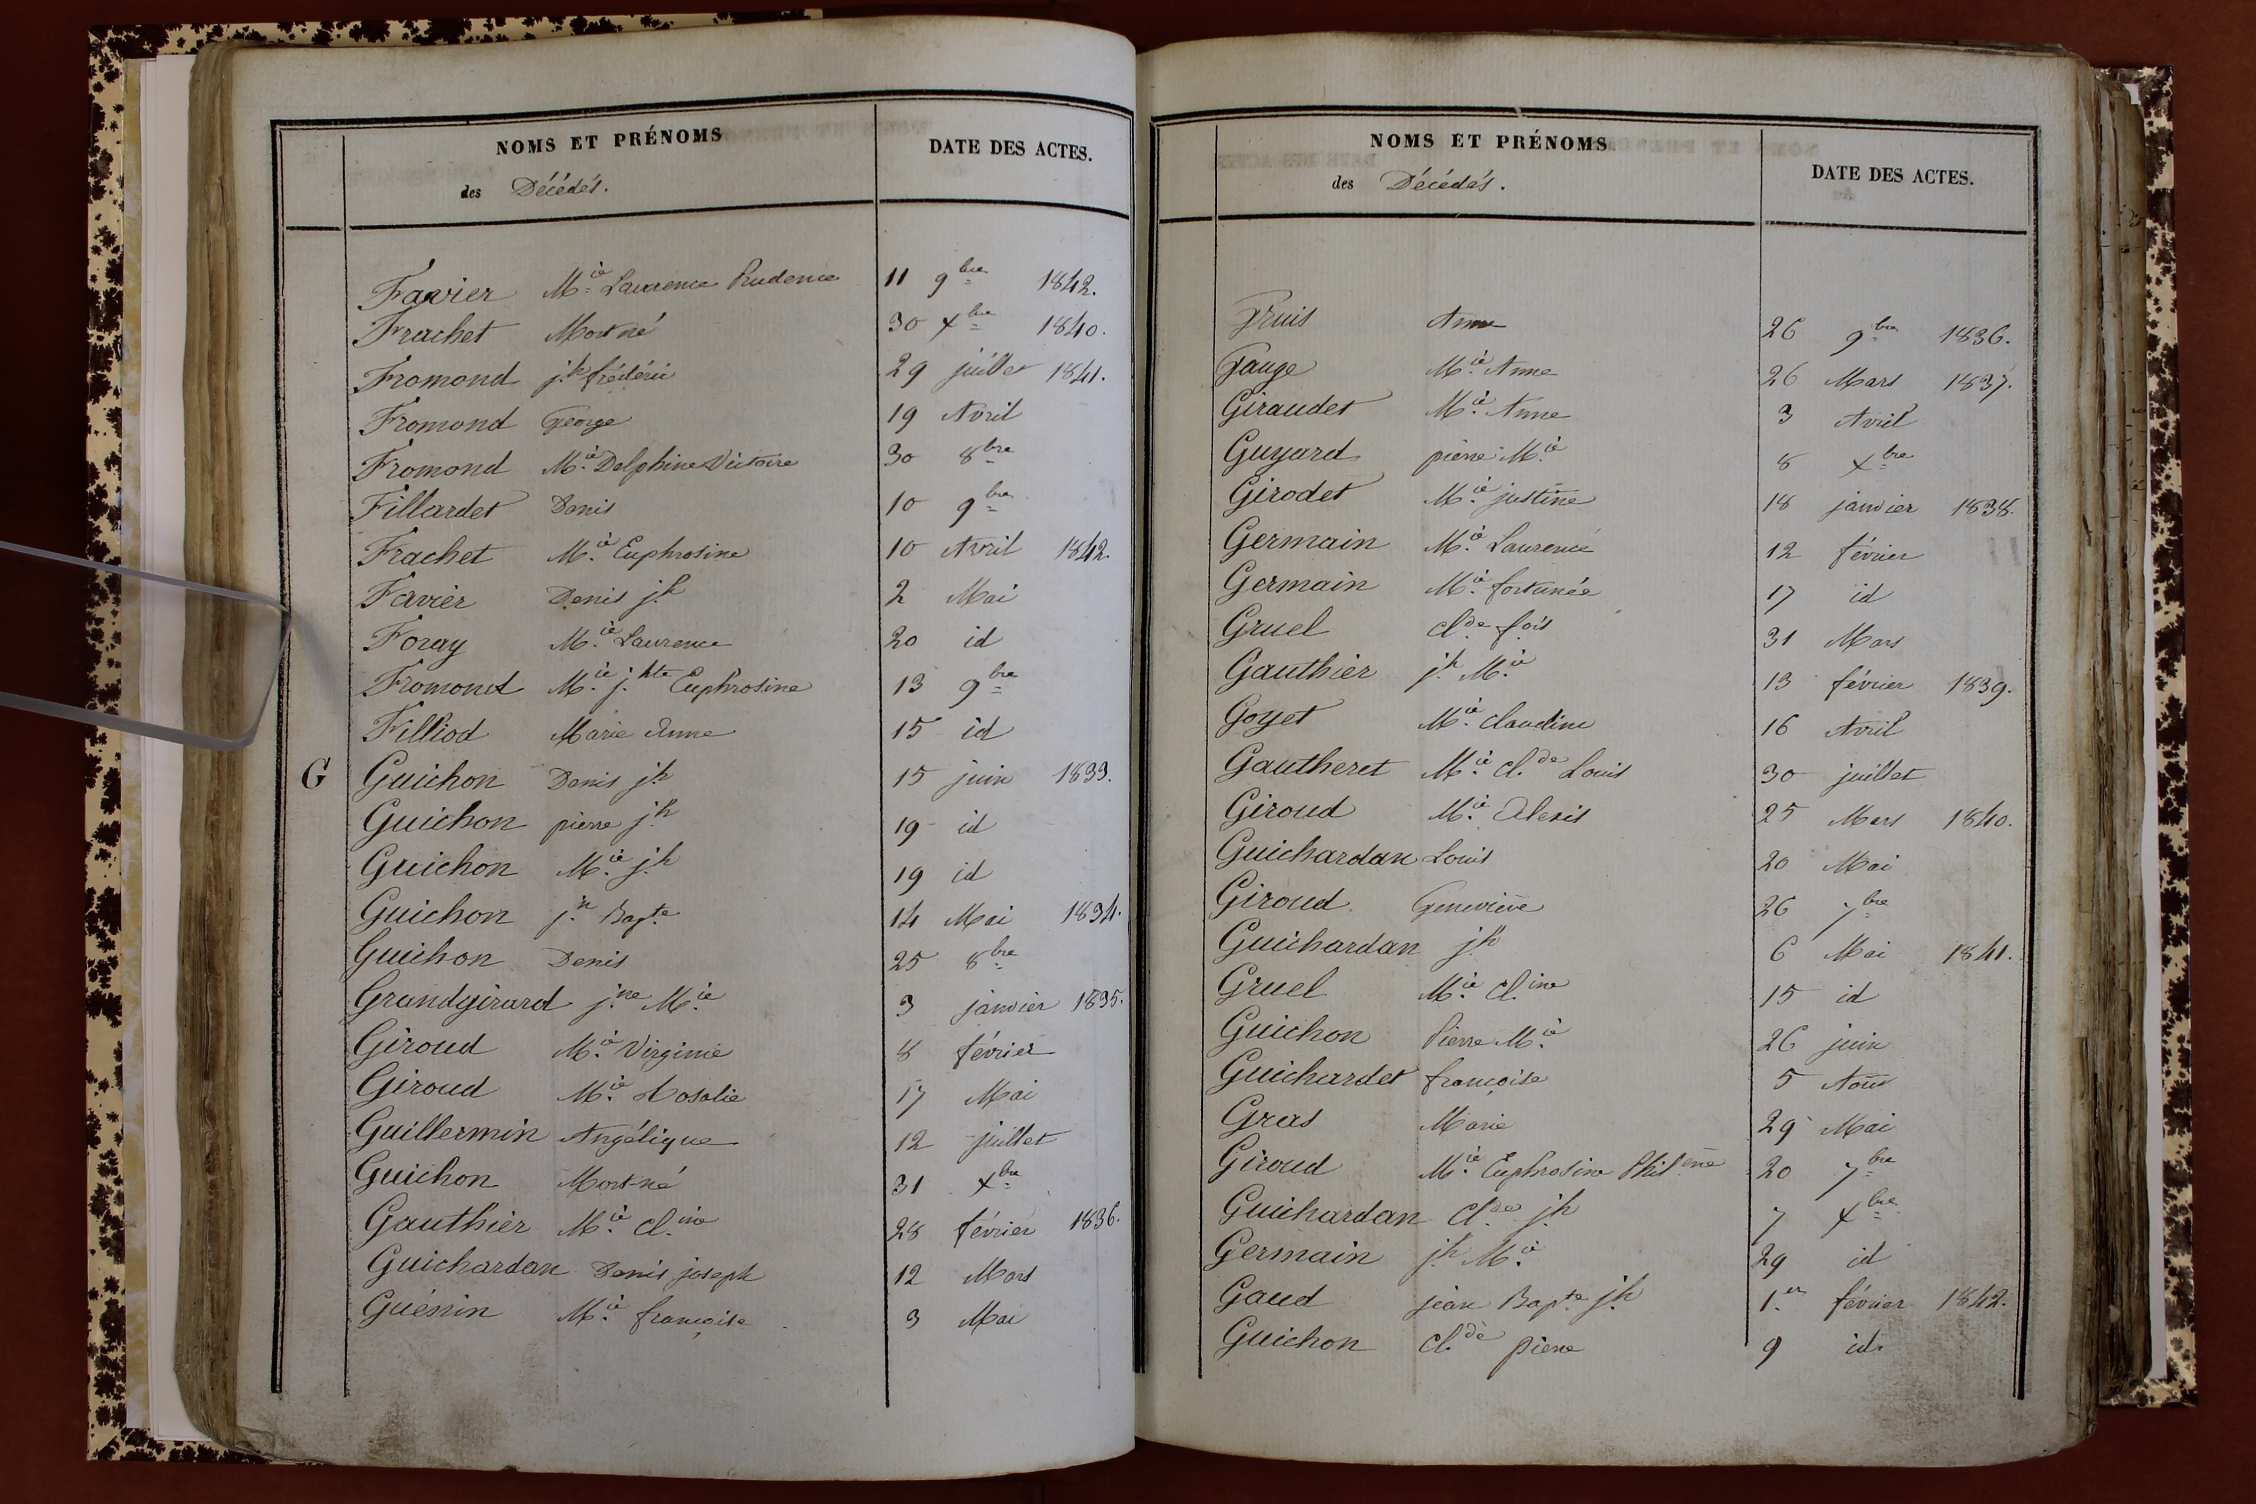 NOMS ET PRÉNOMS
des Décédés.
DATE DES ACTES.
Favier M.ie Laurence Prudence 11 9bre 1842.
Frachet Mort né 30 Xbre 1840.
Fromond j.h frédéric 29 juillet 1841.
Fromond George 19 Avril
Fromond M.ie Delphine Victoire 30 8bre
Fillardet Denis 10 9bre
Frachet M.ie Euphrosine 10 Avril 1842.
Favier Denis j.h 2 Mai
Foray M.ie Laurence 20 id
Fromond M.ie j.hte Euphrosine 13 9bre
Filliod Marie Anne 15 id
G Guichon Denis j.h 15 juin 1833.
Guichon pierre j.h 19 id
Guichon M.ie j.h 19 id
Guichon j.n Bapt.e 14 Mai 1834.
Guichon Denis 25 8bre
Grandgirard j.ne M.ie 3 janvier 1835.
Giroud M.ie Virginie 8 février
Giroud M.ie Rosalie 17 Mai
Guillermin Angélique 12 juillet
Guichon Mort-né 31 Xbre
Gauthier M.ie Cl.ine 28 février 1836.
Guichardan Denis joseph 12 Mars
Guérrin M.ie françoise 3 Mai
NOMS ET PRÉNOMS
des Décédés.
DATE DES ACTES.
Gruis Anne 26 9bre 1836.
Gauge M.ie Anne 26 Mars 1837.
Giraudet M.ie Anne 3 Avril
Guyard pierre M.ie 8 Xbre
Girodet M.ie justine 18 janvier 1838.
Germain M.ie Laurence 12 février
Germain M.ie fortunée 17 id
Gruel Cl.de fois 31 Mars
Gauthier j.h M.ie 13 février 1839.
Goyet M.ie Claudine 16 Avril
Gautheret M.ie Cl.de Louis 30 juillet
Giroud M.ie Alexis 25 Mars 1840.
Guichardan Louis 20 Mai
Giroud Geneviève 26 7bre
Guichardan j.h 6 Mai 1841.
Gruel M.ie Cl.ine 15 id
Guichon Pierre M.ie 26 juin
Guichardet françoise 5 Août
Gras Marie 29 Mai
Giroud M.ie Euphrosine Phil.ène 20 7bre
Guichardan Cl.de j.h 7 Xbre
Germain j.h M.ie 29 id
Gaud jean Bapt.e j.h 1.er février 1842.
Guichon Cl.de pierre 9 id.